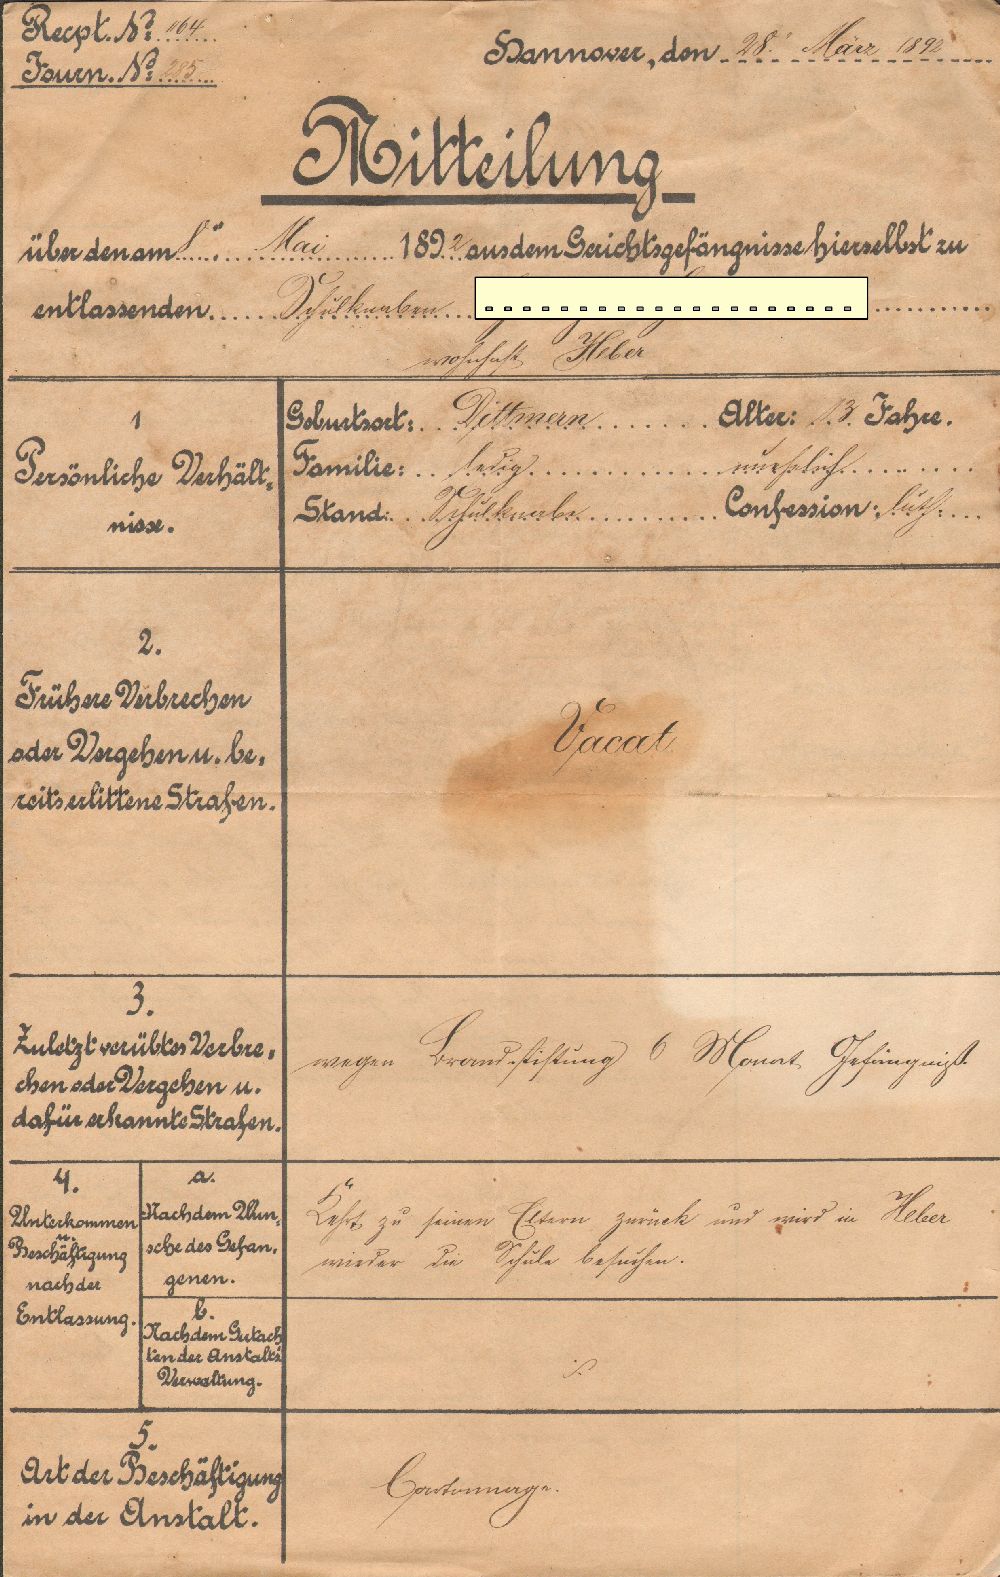 Recpt. No: 164
Journ. No: 285
Hannover, den 28. März 1892
Mitteilung
über den am 8. Mai 1892 aus dem Gerichtsgefängnisse hierselbst zu
entlassenden Schulknaben
wohnhaft Heber
1
Persönliche Verhält-
nisse.
Geburtsort: Dittmern Alter: 13 Jahre.
Familie: ledig unehelich
Stand: Schulknabe Confession: luth.
2.
Frühere Verbrechen
oder Vergehen u. be-
reits erlittene Strafen.
Vacat
3.
Zuletzt verübtes Verbre-
chen oder Vergehen u.
dafür erkannte Strafen.
wegen Brandstiftung 6 Monat Gefängniß
4.
Unterkommen
u.
Beschäftigung
nach der
Entlassung.
a.
Nach dem Wun-
sche des Gefan-
genen.
Kehrt zu seinen Eltern zurück und wird in Heber
wieder die Schule besuchen.
b.
Nach dem Gutach
ten der Anstalts
Verwaltung.
5.
Art der Beschäftigung
in der Anstalt.
Cartonnage.